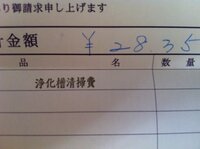 り御請求申し上げます
金額 ¥ 2835
品 名 数量
浄化槽清掃費